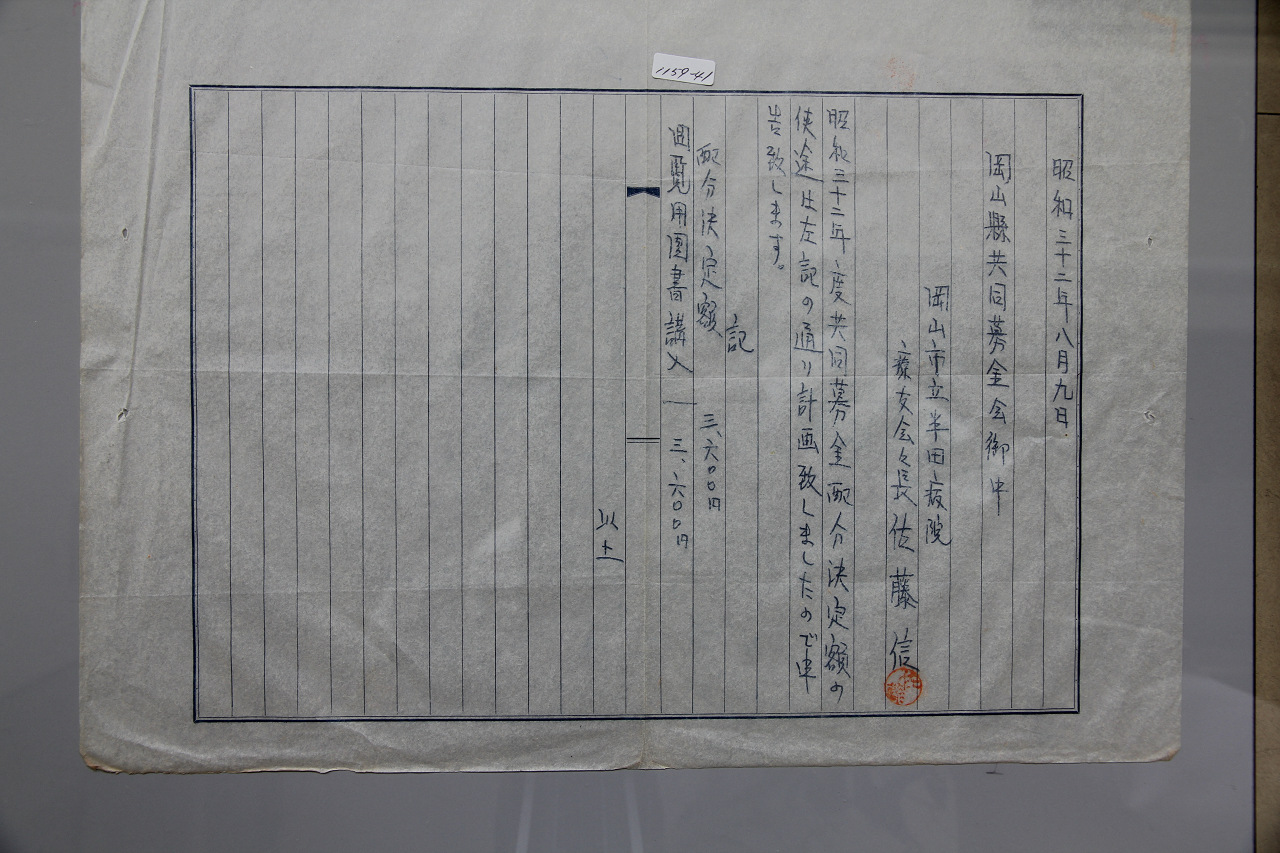 1159-41
昭和三十二年八月九日
岡山縣共同募金会御中
岡山市立半田病院
療友会々長佐藤信
昭和三十二年度共同募金配分決定額の
使途は左記の通り計画致しましたので申
告致します。
記
配分決定額 三、六〇〇円
回覧用図書講入 ― 三、六〇〇円
以上